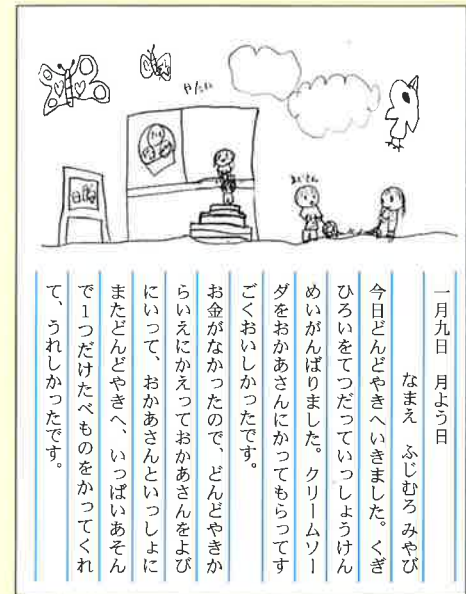 やたい
一月九日　月よう日
なまえ　ふじむろ みやび
今日どんどやきへいきました。くぎ
ひろいをてつだっていっしょうけん
めいがんばりました。クリームソー
ダをおかあさんにかってもらってす
ごくおいしかったです。
お金がなかったので、どんどやきか
らいえにかえっておかあさんをよび
にいって、おかあさんといっしょに
またどんどやきへ、いっぱいあそん
で1つだけたべものをかってくれ
て、うれしかったです。